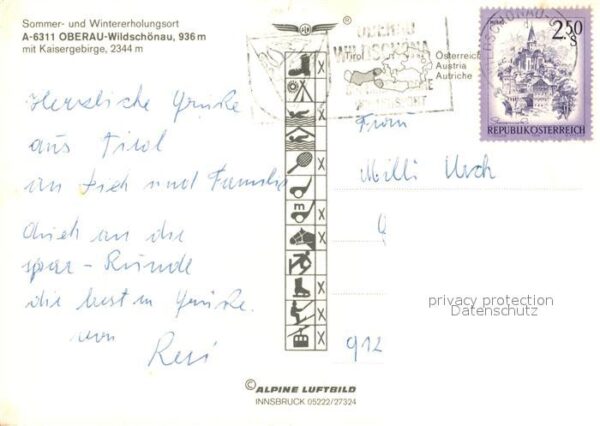 Sommer- und Wintererholungsort
A-6311 OBERAU-Wildschönau, 936 m
mit Kaisergebirge, 2344 m
Tirol
Österreich
Austria
Autriche
OBERAU
WILDSCHÖNAU
2.50
S
REPUBLIK ÖSTERREICH
Herzliche Grüße
aus Tirol
an Dich und Familie
Auch an die
Spar-Runde
die besten Grüße.
von
Resi
Frau
Milli
912
m
X
privacy protection
Datenschutz
© ALPINE LUFTBILD
INNSBRUCK 05222/27324